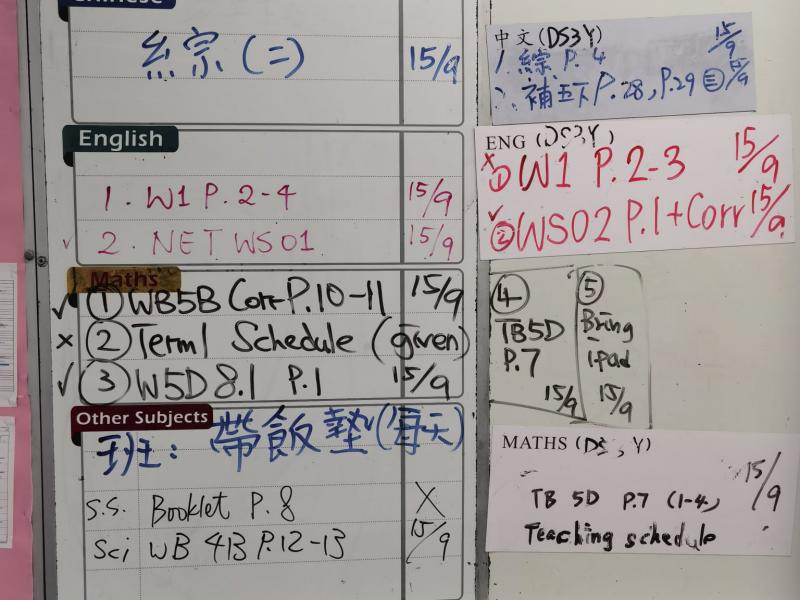 Chinese
糹宗(二) 15/9
English
1. W1 P. 2-4 15/9
✓ 2. NET WS01 15/9
Maths
✓ ① WB5B Corr P.10-11 15/9
x ② Term1 Schedule (given)
✓ ③ W5D 8.1 P.1 15/9
Other Subjects
班: 帶飯墊(每天)
S.S. Booklet P. 8 X
Sci WB 4B P.12-13 15/9
中文(DS3Y) 15/9
1. 綜 P. 4
2. 補五下 P.28, P.29 15/9
ENG (DS3Y) 15/9
x ① W1 P. 2-3
✓ ② WS02 P.1+Corr 15/9
④
TB5D
P.7
15/9
⑤
Bring
ipad
15/9
MATHS (DS, Y) 15/9
TB 5D P.7 (1-4)
Teaching schedule